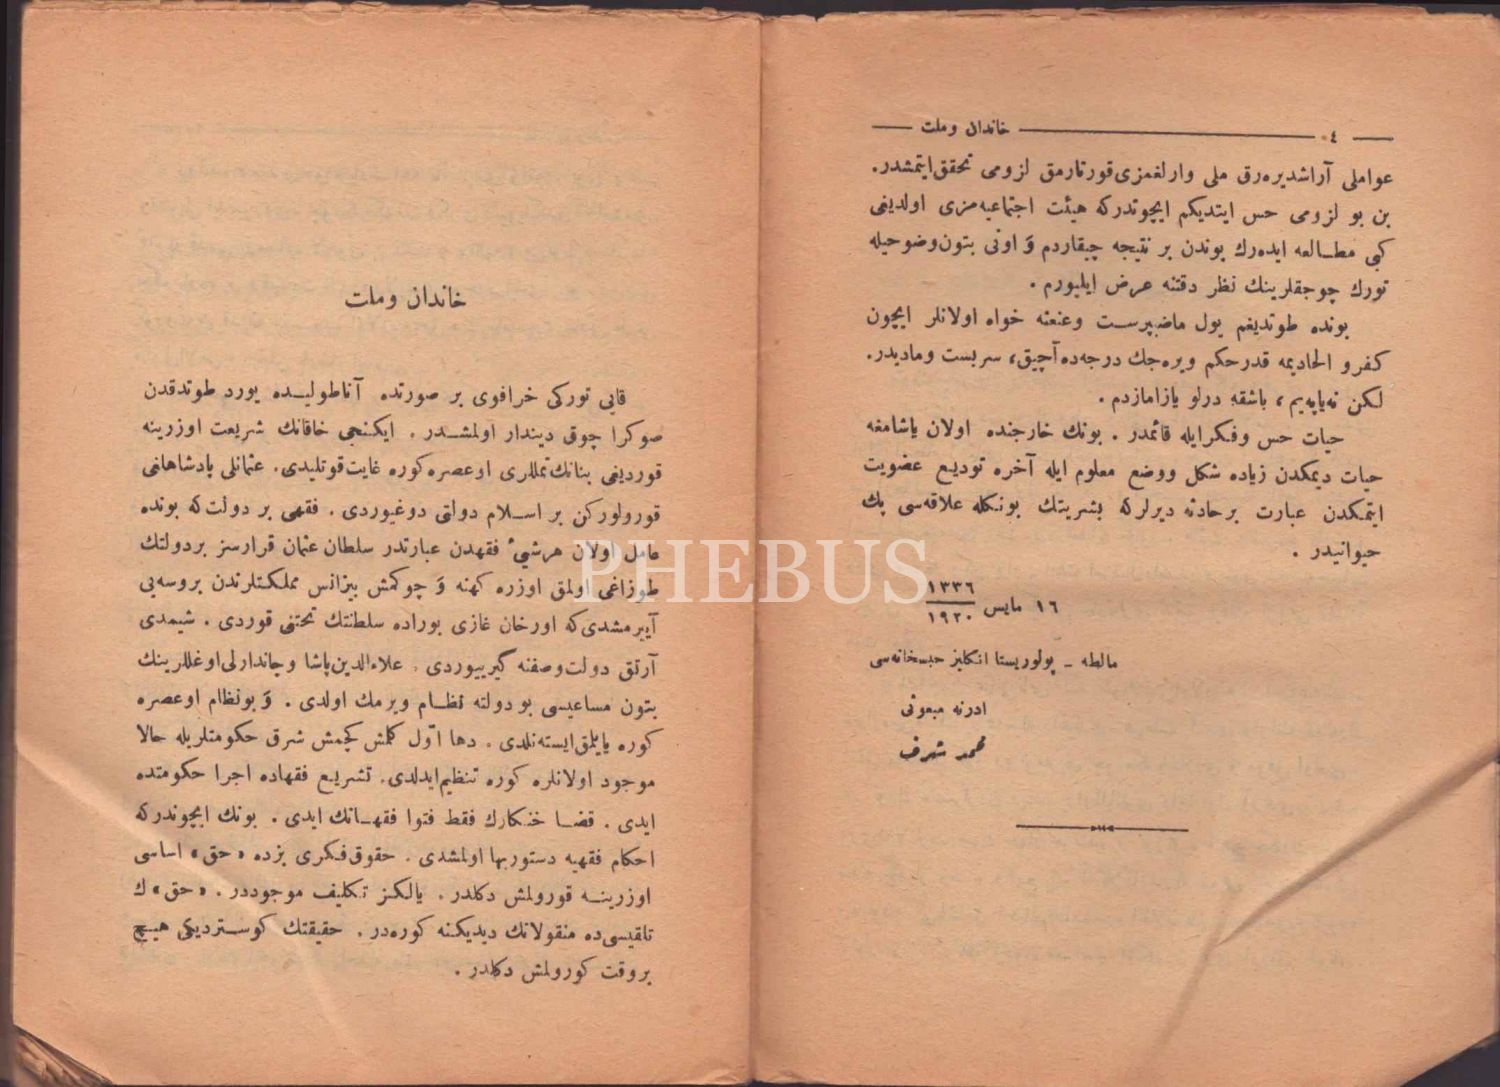 ٤ خاندان وملت
عواملی آراشدیره‌رق ملی وارلغمزی قورتارمق لزومی تحقق ایتمشدر.
بن بو لزومی حس ایتدیکم ایچوندرکه هیئت اجتماعیه‌مزی اولدیغی
کبی مطالعه ایده‌رك بوندن بر نتیجه چیقاردم وَ اونی بتون وضوحیله
تورك چوجقلرینك نظر دقتنه عرض ایلیورم .
بونده طوتدیغم یول ماضیپرست وعنعنه خواه اولانلر ایچون
کفرو الحادیمه قدر حکم ویره‌جك درجه‌ده آچیق، سربست ومادیدر.
لکن نه‌یاپه‌یم، باشقه درلو یازامازدم .
حیات حس وفکرایله قائمدر . بونك خارجنده اولان یاشامغه
حیات دیمکدن زیاده شکل ووضع معلوم ایله آخره تودیع عضویت
ایتمکدن عبارت برحادثه دیرلرکه بشریتك بونکله علاقه‌سی پك
حیوانیدر .
١٦ مایس ١٣٣٦
١٩٢٠
مالطه ـ پولوریستا انکلیز حبسخانه‌سی
ادرنه مبعوثی
محمد شرف
خاندان وملت
قایی تورکی خرافوی بر صورتده آناطولیده یورد طوتدقدن
صوکرا چوق دیندار اولمشدر . ایکنجی خاقانك شریعت اوزرینه
قوردیغی بنانك تمللری اوعصره کوره غایت قوتلیدی. عثمانلی پادشاهلغی
قورولورکن بر اسلام دولتی دوغیوردی . فقهی بر دولت که بونده
عامل اولان هرشیٔ فقهدن عبارتدر سلطان عثمان قرارسز بردولتك
طوزاغی اولمق اوزره کهنه وَ چوکمش بیزانس مملکتلرندن بروسه‌یی
آییرمشدی که اورخان غازی بوراده سلطنتك تختنی قوردی . شیمدی
آرتق دولت وصفنه کیرییوردی . علاءالدین پاشا وچاندارلی اوغللرینك
بتون مساعیسی بو دولته نظام ویرمك اولدی . وَ بونظام اوعصره
کوره یاپلمق ایسته‌نلدی . دها اوّل کلمش کچمش شرق حکومتلریله حالا
موجود اولانلره کوره تنظیم ایدلدی. تشریع فقهاده اجرا حکومتده
ایدی . قضا خنکارك فقط فتوا فقهانك ایدی . بونك ایچوندرکه
احکام فقهیه دستوربها اولمشدی . حقوق فکری بزده «حق» اساسی
اوزرینه قورولمش دکلدر . یالکز تکلیف موجوددر . «حق» ك
تلقیسی‌ده منقولاتك دیدیکنه کوره‌در . حقیقتك کوستردیکی هیچ
بروقت کورولمش دکلدر .
PHEBUS